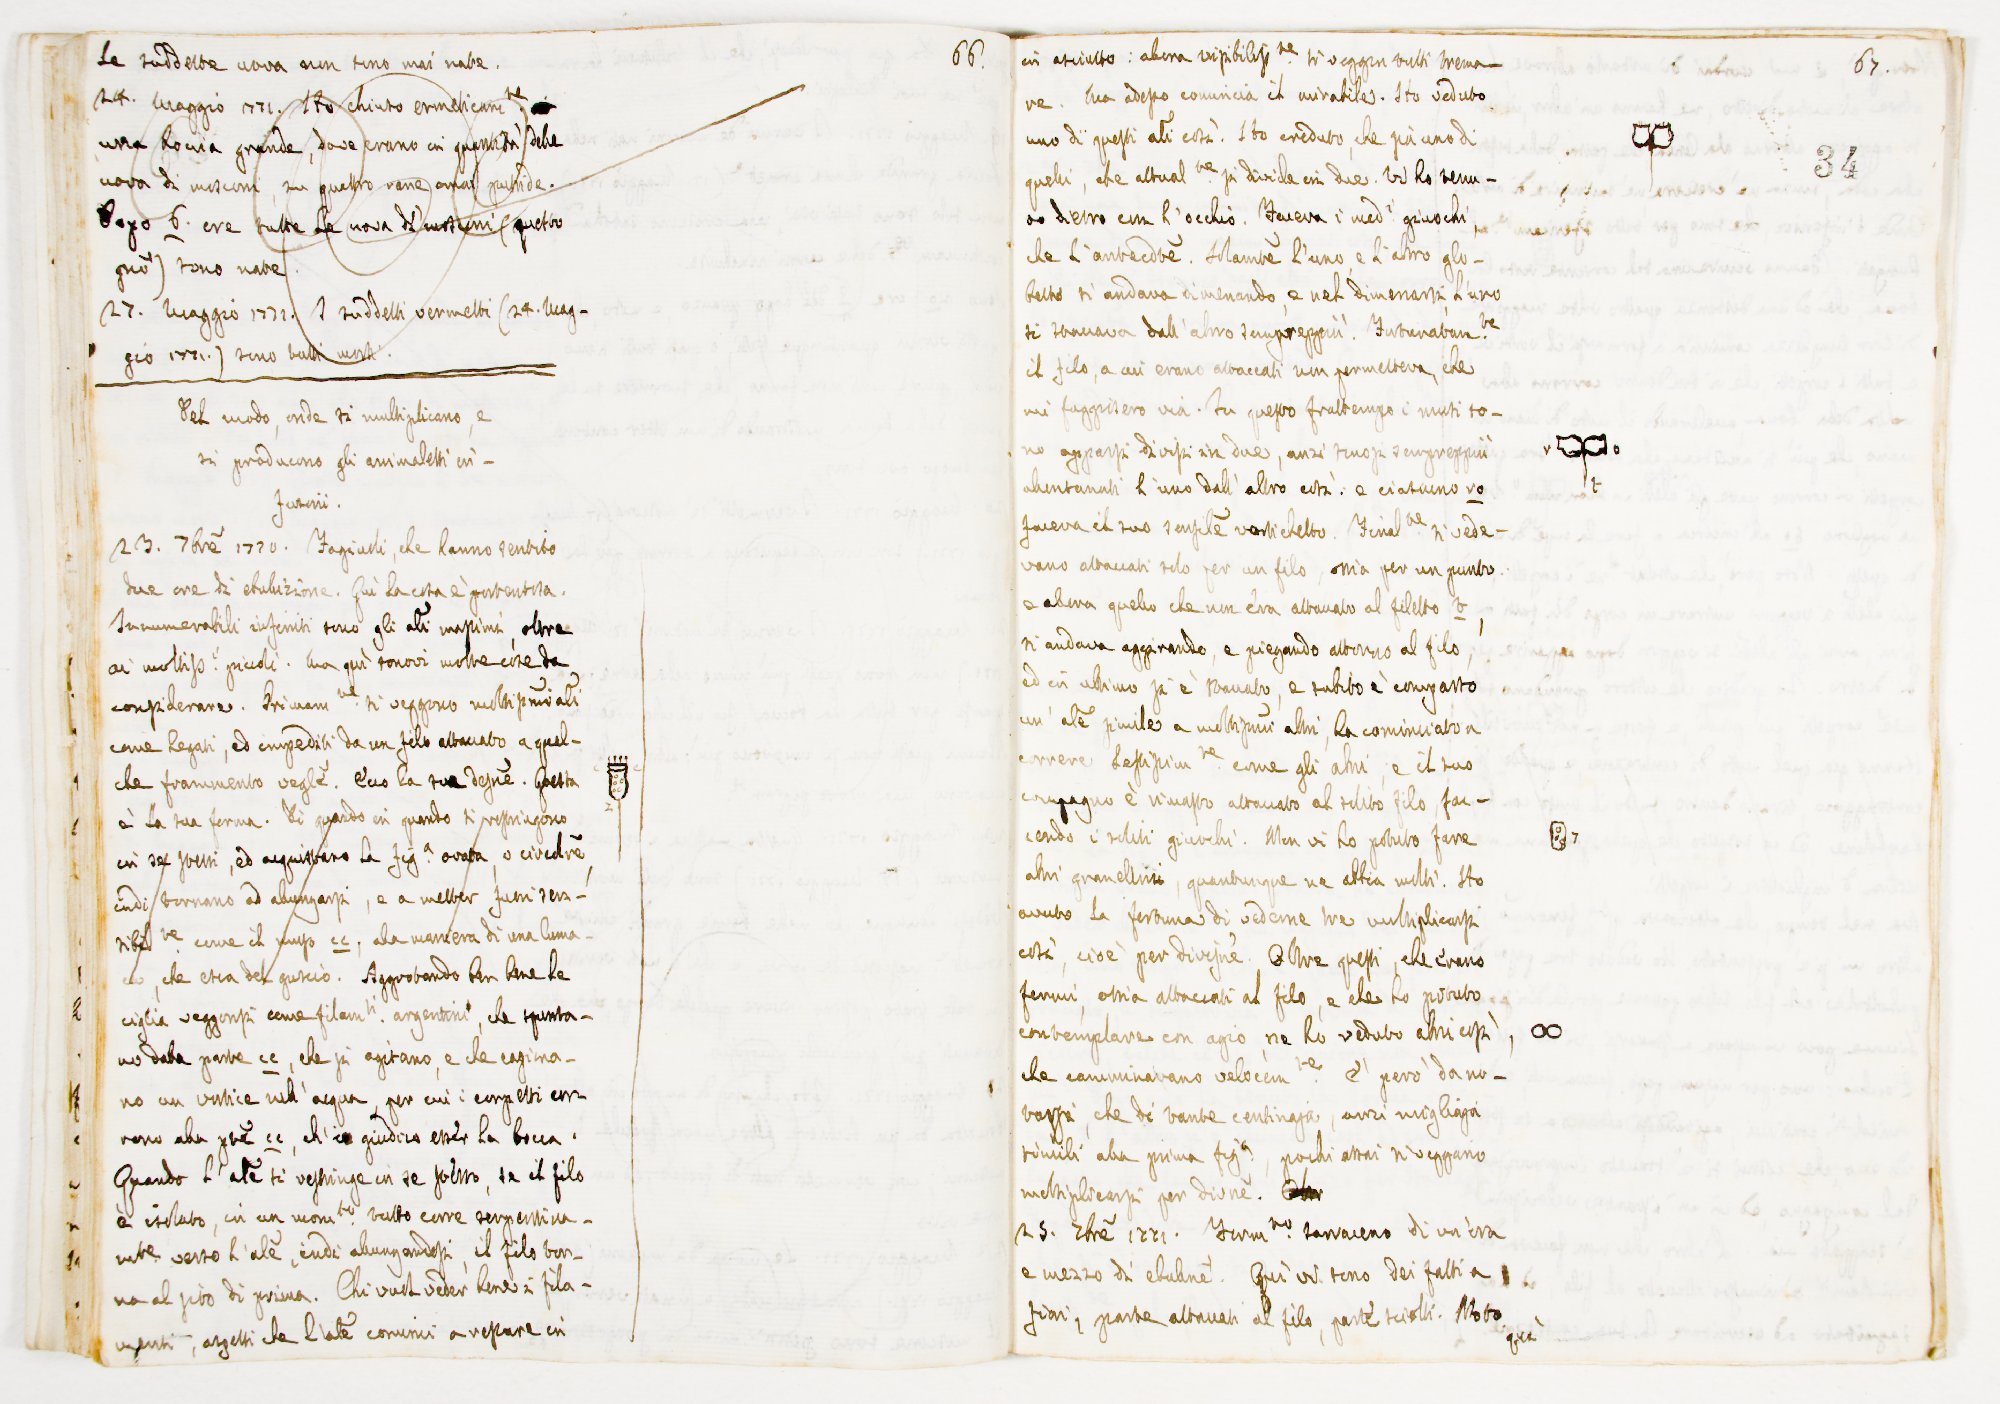 66.
Le suddette uova non sono mai nate.
24. Maggio 1771. Ho chiuso ermeticam.te in
una boccia grande, dove erano in quantità delle
uova di mosconi, su quattro rane omai putride.
Dopo 6. ore tutte le uova di mosconi (quattro
) sono nate.
27. Maggio 1771. I suddetti vermetti (24. Mag-
gio 1771.) sono tutti morti.
Del modo, onde si multiplicano, e
si producono gli animaletti in-
fusorii.
23. 7bre 1770. Fagiuoli, che hanno sentito
due ore di ebulizione. Quì la cosa è portentosa.
Innumerabili infiniti sono gli ali massimi, oltre
ai moltiss.i piccoli. Ma quì sonovi molte cose da
considerare. Primam.te si veggono moltissimi ali
come legati, ed impediti da un filo attaccato a qual-
che frammento vegle. Ecco la sua desne. Questa
è la sua forma. Di quando in quando si restringono
in se stessi, ed acquistano la fig.a ovata, o circolre,
indi tornano ad allungarsi, e a metter fuori sen-
sibil.te come il muso cc, alla maniera di una luma-
ca, che esca del guscio. Approtando ben bene le
ciglia veggonsi come filam.ti argentini, che spunta-
no dalla parte cc, che si agitano, e che cagiona-
no un vortice nell'acqua, per cui i corpetti cor-
rono alla pte cc, ch'io giudico esser la bocca.
Quando l'ale si restringe in se stesso, se il filo
è isolato, in un mom.to tutto corre serpentina-
mte verso l'ale, indi allungandosi, il filo tor-
na al sito di prima. Chi vuol veder bene i fila-
menti, aspetti che l'ale cominci a restare in
67.
34
in asciutto: allora visibiliss.te si veggon tutti trema-
re. Ma adesso comincia il mirabile. Ho veduto
uno di questi ali così. Ho creduto, che sia uno di
quelli, che attual.te si divide in due. Vi ho tenu-
to dietro con l'occhio. Faceva i med.i giuochi,
che l'antecedte. Solamte l'uno, e l'altro glo-
betto si andava dimenando, e nel dimenarsi l'uno
si staccava dall'altro sempreppiù. Fortunatam.te
il filo, a cui erano attaccati non permetteva, che
mi fuggissero via. In questo frattempo i musi so-
no apparsi divisi in due, anzi sonosi sempreppiù
r o
allontanati l'uno dall'altro così: e ciascuno ro
t
faceva il suo sensile vortichetto. Final.te si vede-
vano attaccati solo per un filo, ossia per un punto.
e allora quello che non era attaccato al filetto t,
si andava aggirando, e piegando attorno al filo,
ed in ultimo si è staccato, e subito è comparso
un'ale simile a moltissimi altri, ha cominciato a
correre lestissim.te come gli altri, e il suo
compagno è rimasto attaccato al solito filo, fac-
cendo i soliti giuochi. Non vi ho potuto fare
altri granellini, quantunque ne abbia molti. Ho
avuto la fortuna di vederne tre multiplicarsi
così, cioè per divisne. Oltre questi, che erano
fermi, ossia attaccati al filo, e che ho potuto
contemplare con agio, ne ho veduto altri così,
che camminavano velocem.te. E' però da no-
tarsi, che di tante centinaja, anzi migliaja
simili alla prima fig.a, pochi assai si veggono
multiplicarsi per divne.
25. 7bre 1771. Form.to saraceno di un'ora
e mezzo di ebulne. Quì vi sono dei fatti a
fiori, parte attaccati al filo, parte sciolti. Noto